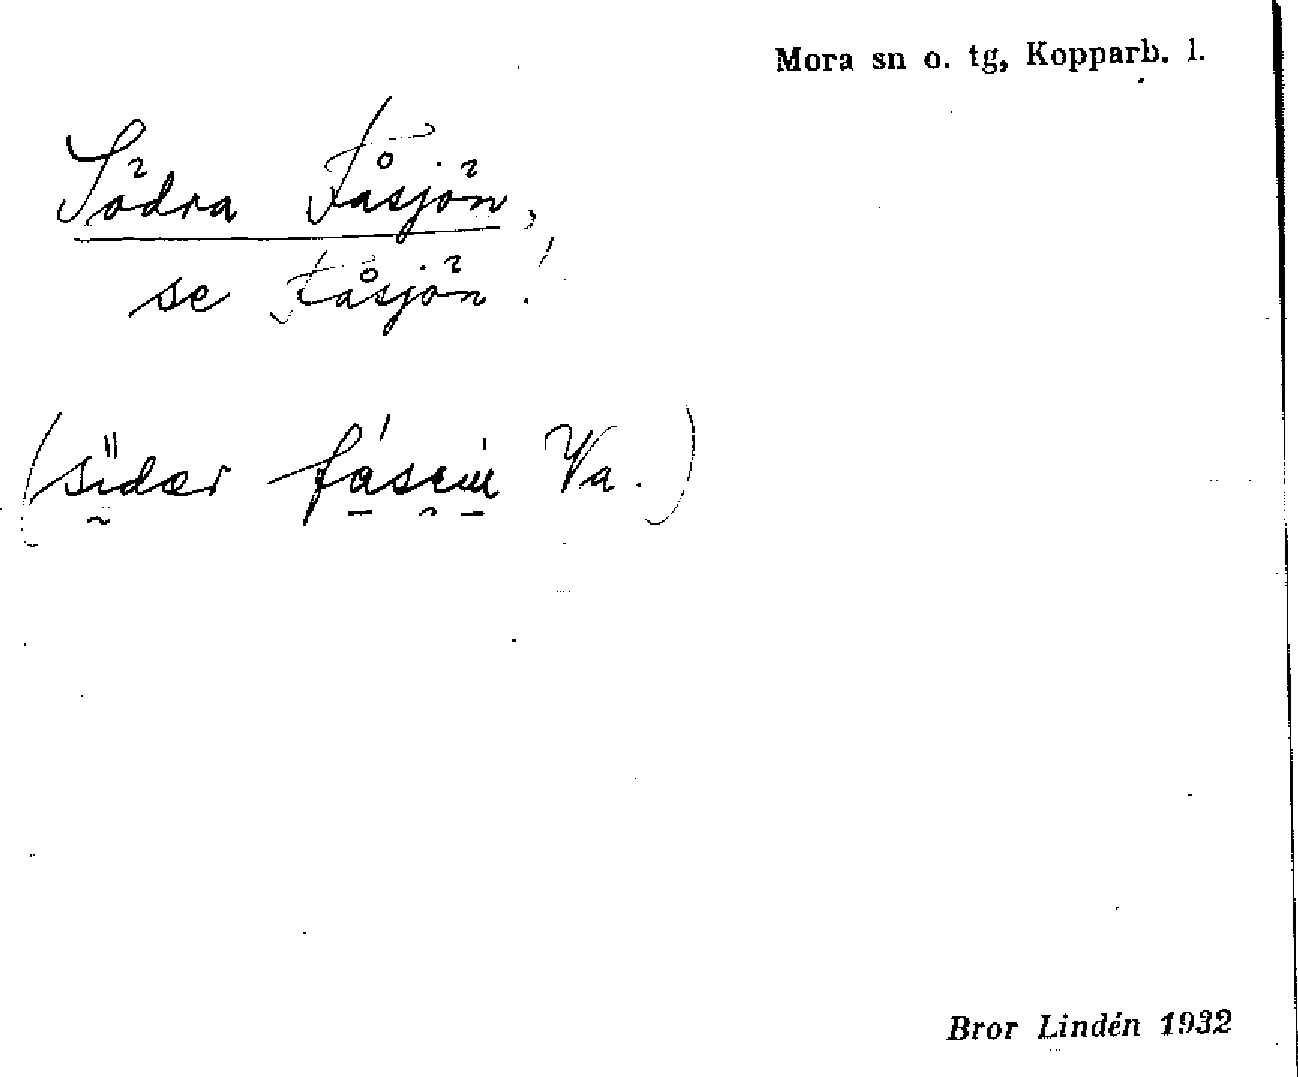 Mora sn o. tg, Kopparb. l.
Södra Fåsjön,
se Fåsjön!
(sïdær Va.)
Bror Lindén 1932